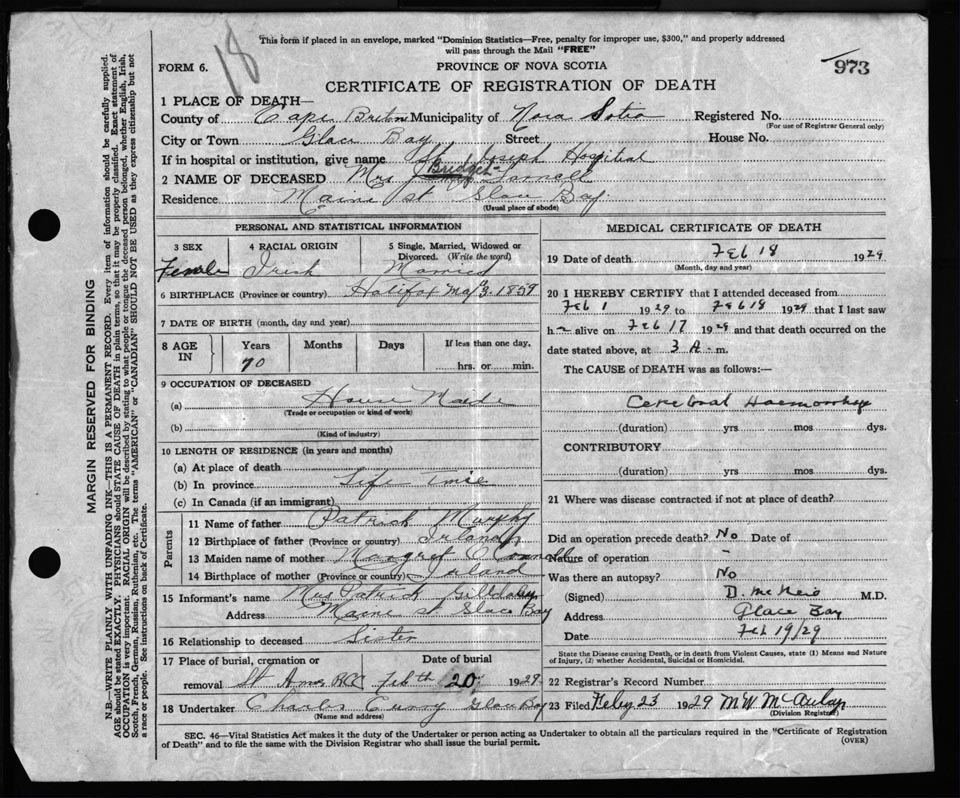 This form if placed in an envelope, marked "Dominion Statistics—Free, penalty for improper use, $300," and properly addressed
will pass through the Mail "FREE"
18
FORM 6.
PROVINCE OF NOVA SCOTIA
973
CERTIFICATE OF REGISTRATION OF DEATH
1 PLACE OF DEATH—
County of Cape Breton Municipality of Nova Sotia Registered No.
(For use of Registrar General only)
City or Town Glace Bay Street House No.
If in hospital or institution, give name St Joseph Hospital
2 NAME OF DECEASED Mrs Bridget
Residence Maine st Glace Bay
(Usual place of abode)
PERSONAL AND STATISTICAL INFORMATION
3 SEX 4 RACIAL ORIGIN 5 Single, Married, Widowed or Divorced. (Write the word)
Female Irish Married
6 BIRTHPLACE (Province or country) Halifax May 3. 1859
7 DATE OF BIRTH (month, day and year)
8 AGE IN Years Months Days If less than one day,
70 hrs. or min.
9 OCCUPATION OF DECEASED
(a) House
(Trade or occupation or kind of work)
(b)
(Kind of industry)
10 LENGTH OF RESIDENCE (in years and months)
(a) At place of death
(b) In province Life time
(c) In Canada (if an immigrant)
Parents
11 Name of father Patrick Murphy
12 Birthplace of father (Province or country) Irland
13 Maiden name of mother Margret O Connell
14 Birthplace of mother (Province or country) Irland
15 Informant's name Mrs Patrick
Address Maine st Glace Bay
16 Relationship to deceased Sister
17 Place of burial, cremation or removal Date of burial
St Anns RCC Feb th 20 1929
18 Undertaker Charles Curry Glace Bay
(Name and address)
MEDICAL CERTIFICATE OF DEATH
19 Date of death Feb 18 1929
(Month, day and year)
20 I HEREBY CERTIFY that I attended deceased from
Feb 1 1929 to Feb 18 1929 that I last saw
h er alive on Feb 17 1929 and that death occurred on
date stated above, at 3 A. m.
The CAUSE of DEATH was as follows:—
Cerebral Haemorrhage
(duration) yrs mos dys.
CONTRIBUTORY
(duration) yrs mos dys.
21 Where was disease contracted if not at place of death?
Did an operation precede death? No Date of
Nature of operation –
Was there an autopsy? No
(Signed) D. McNeil M.D.
Address Glace Bay
Date Feb 19/29
State the Disease causing Death, or in death from Violent Causes, state (1) Means and Nature
of Injury, (2) whether Accidental, Suicidal or Homicidal.
22 Registrar's Record Number
23 Filed Feby 23 1929 M W McAulay
(Division Registrar)
SEC. 46—Vital Statistics Act makes it the duty of the Undertaker or person acting as Undertaker to obtain all the particulars required in the "Certificate of Registration
of Death" and to file the same with the Division Registrar who shall issue the burial permit.
(OVER)
MARGIN RESERVED FOR BINDING
N.B.—WRITE PLAINLY WITH UNFADING INK—THIS IS A PERMANENT RECORD. Every item of information should be carefully supplied.
AGE should be stated EXACTLY. PHYSICIANS should STATE CAUSE OF DEATH in plain terms, so that it may be properly classified. Exact statement of
OCCUPATION is very important. RACIAL ORIGIN will be described by stating to what people or tongue the deceased person belonged, whether English, Irish,
Scotch, French, German, Russian, Ruthenian, etc. The terms "AMERICAN" or "CANADIAN" SHOULD NOT BE USED as they express citizenship but not
a race or people. See instructions on back of Certificate.